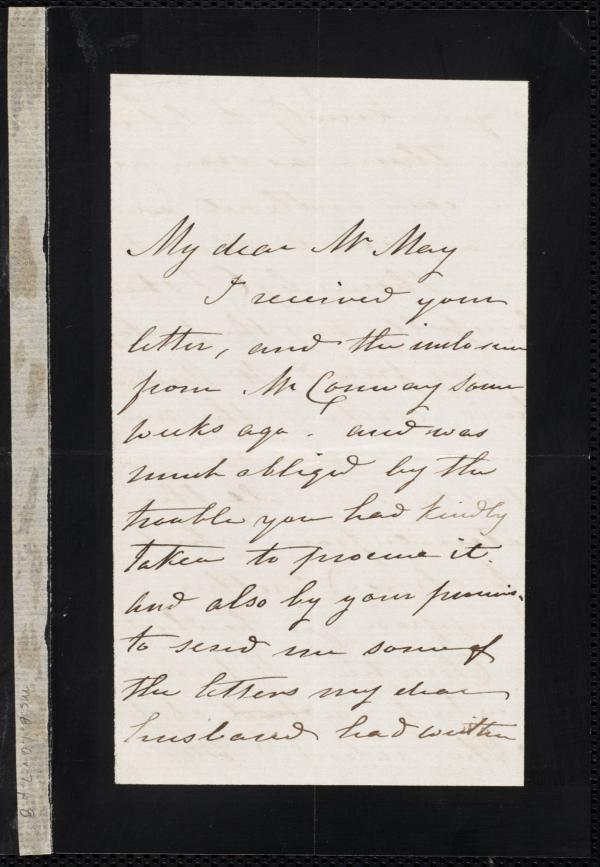 My dear Mr May
I received your
letter, and the inclosure
from Mr Conway some
weeks ago. and was
much obliged by the
trouble you had kindly
taken to procure it.
and also by your promise
to send me some of
the letters my dear
husband had written